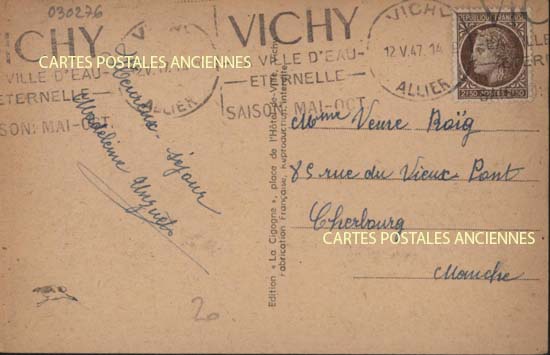 030276
VICHY
VILLE D'EAU-
ETERNELLE
SAISON: MAI-OCT.
VICHY
12.V.47.14
ALLIER
VICHY
VILLE D'EAU-
ETERNELLE
SAISON: MAI-OCT.
VICHY
12.V.47.14
ALLIER
REPUBLIQUE FRANÇAISE
2F50 POSTES 2F50
CARTES POSTALES ANCIENNES
Heureux séjour
Madeleine
Edition « La Cigogne », place de l'Hôtel-de-Ville, Vichy
Fabrication Française, Reproduction interdite
Mme Veuve Roïg
85 rue du Vieux Pont
Cherbourg
CARTES POSTALES ANCIENNES
Manche
20